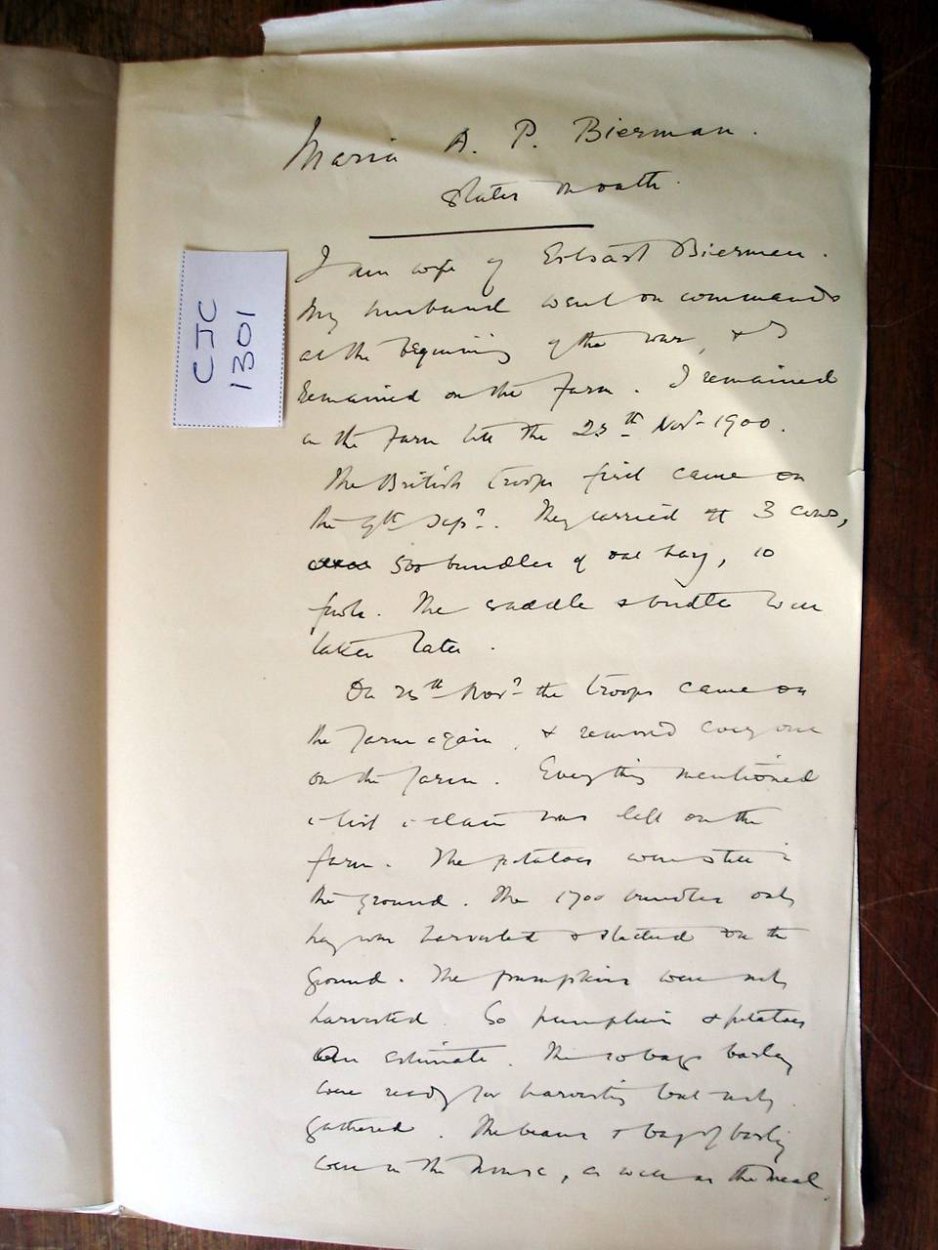 Maria A. P. Bierman.
States on oath.
CJC
1301
I am wife of Bierman.
My husband went on commando
at the beginning of the war, & I
remained on the farm. I remained
on the farm till the 25th Novr 1900.
The British troops first came on
the 9th Sepr. They carried off 3 cows,
500 bundles of oat hay, 10
fowls. The saddle & bridle were
taken later.
On 25th Novr the troops came on
the farm again, & removed everyone
on the farm. Everything mentioned
in list in claim was left on the
farm. The potatoes were still in
the ground. The 1700 bundles oat
hay was harvested & stacked on the
ground. The pumpkins were not
harvested. So pumpkins & potatoes
are estimate. The 20 bags barley
were ready for harvesting but not
gathered. The beans & bag of barley
were in the house, as well as the meal.